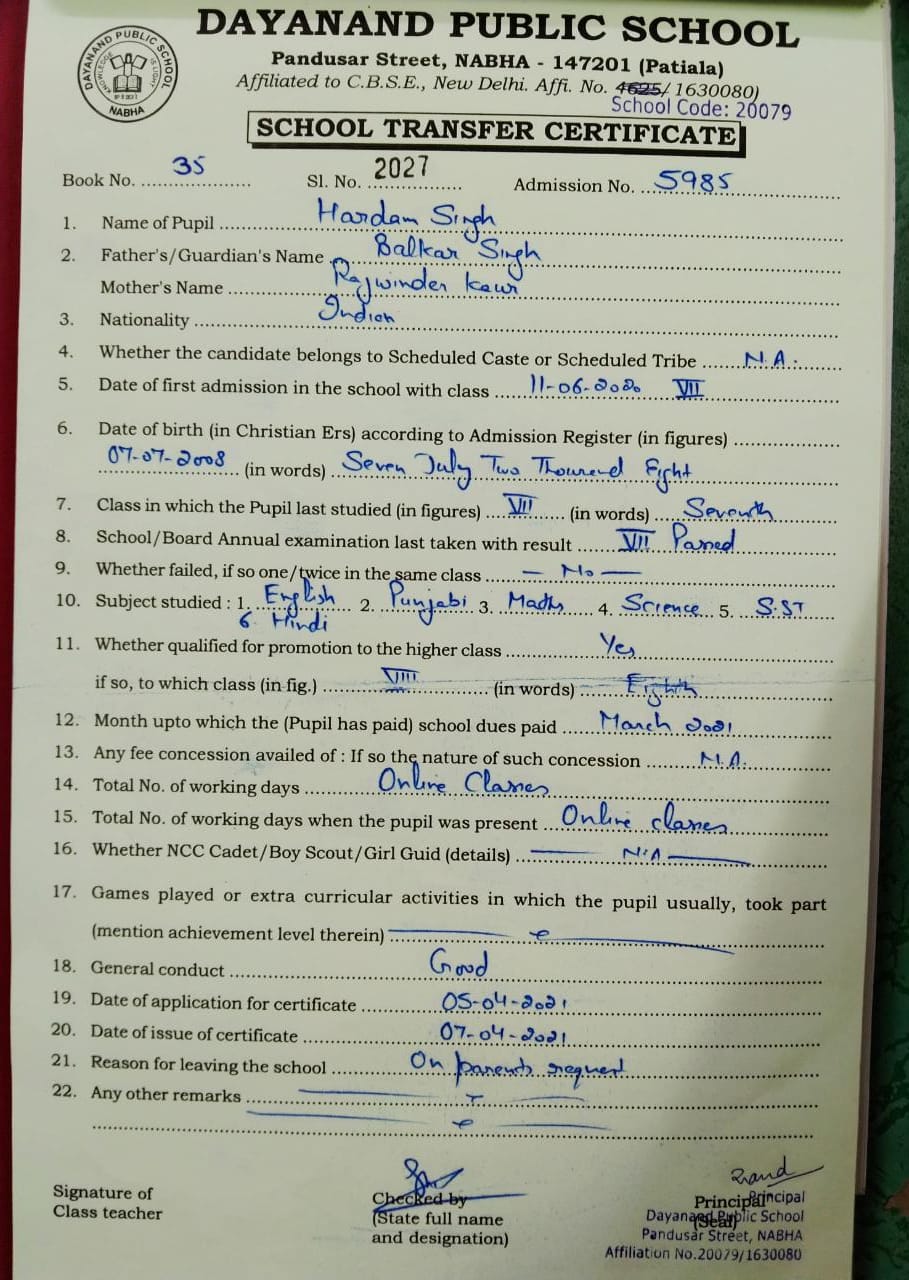 DAYANAND PUBLIC SCHOOL
DAYANAND PUBLIC SCHOOL
KNOWLEDGE IS LIGHT
NABHA
Pandusar Street, NABHA - 147201 (Patiala)
Affiliated to C.B.S.E., New Delhi. Affi. No. 4625/ 1630080)
School Code: 20079
SCHOOL TRANSFER CERTIFICATE
Book No. 35 Sl. No. 2027 Admission No. 5985
1. Name of Pupil Hardam Singh
2. Father's/Guardian's Name Balkar Singh
Mother's Name Rajwinder Kaur
3. Nationality Indian
4. Whether the candidate belongs to Scheduled Caste or Scheduled Tribe N.A.
5. Date of first admission in the school with class 11-06-2020 VII
6. Date of birth (in Christian Ers) according to Admission Register (in figures)
07-07-2008 (in words) Seven July Two Thousend Eight
7. Class in which the Pupil last studied (in figures) VII (in words) Seventh
8. School/Board Annual examination last taken with result VII Passed
9. Whether failed, if so one/twice in the same class — No —
10. Subject studied : 1. English 2. Punjabi 3. Maths 4. Science 5. S.ST
6. Hindi
11. Whether qualified for promotion to the higher class Yes
if so, to which class (in fig.) VIII (in words) Eighth
12. Month upto which the (Pupil has paid) school dues paid March 2021
13. Any fee concession availed of : If so the nature of such concession N.A.
14. Total No. of working days Online Classes
15. Total No. of working days when the pupil was present Online classes
16. Whether NCC Cadet/Boy Scout/Girl Guid (details) — N.A —
17. Games played or extra curricular activities in which the pupil usually, took part
(mention achievement level therein)
18. General conduct Good
19. Date of application for certificate 05-04-2021
20. Date of issue of certificate 07-04-2021
21. Reason for leaving the school On parents request
22. Any other remarks
Signature of
Class teacher
Checked by
(State full name
and designation)
Principal
(Seal)
Principal
Dayanand Public School
Pandusar Street, NABHA
Affiliation No.20079/1630080